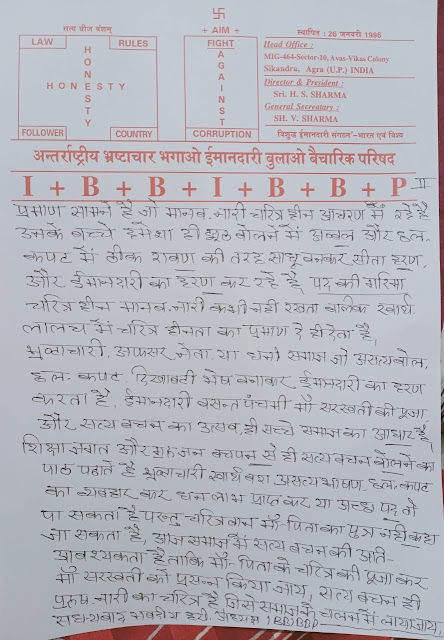 सत्य बीज वंशम्
卐
÷ AIM ÷
स्थापित : 26 जनवरी 1996
LAW
RULES
HONESTY
HONESTY
FOLLOWER
COUNTRY
FIGHT
AGAINST
CORRUPTION
Head Office :
MIG-464-Sector-10, Avas-Vikas Colony
Sikandra, Agra (U.P.) INDIA
Director & President :
Sri. H. S. SHARMA
General Secreatary :
SH. V. SHARMA
'विशुद्ध ईमानदारी संगठन'-भारत एवं विश्व
अन्तर्राष्ट्रीय भ्रष्टाचार भगाओ ईमानदारी बुलाओ वैचारिक परिषद
I + B + B + I + B + B + P II
प्रमाण सामने है जो मानव-नारी चरित्र हीन आचरण में रहे है
उनके बच्चे हमेशा ही झूठ बोलने में अव्वल और छल-
कपट में ठीक रावण की तरह साधू बनकर सीता हरण
और ईमानदारी का हरण कर रहे है पद की गरिमा
चरित्र हीन मानव-नारी कभी नही रखता बल्कि स्वार्थ
लालच में चरित्र हीनता का प्रमाण दे ही देता है,
भ्रष्टाचारी, अफसर नेता, या धनी समाज जो असत्य बोल,
छल-कपट दिखावटी भेष बनाकर ईमानदारी का हरण
करता है, ईमानदारी बसन्त पंचमी माँ सरस्वती की पूजा
और सत्य बचन का उत्सव ही सच्चे समाज का आधार है
शिक्षा जगत और गुरुजन बचपन से ही सत्य बचन बोलने का
पाठ पढ़ाते है भ्रष्टाचारी स्वार्थ बश असत्य भाषण छल-कपट
का व्यवहार कर धन लाभ प्राप्त कर या अच्छा पद तो
पा सकता है परन्तु चरित्रवान माँ-पिता का पुत्र नही कहा
जा सकता है, आज समाज में सत्य बचन की अति-
आवश्यकता है ताकि माँ-पिता के चरित्र की पूजा कर
माँ सरस्वती को प्रसन्न किया जाय, सत्य बचन ही
पुरुष-नारी का चरित्र है जिसे समाज के चलन में लाया जाय,
सधन्यवाद भवदीय हरी